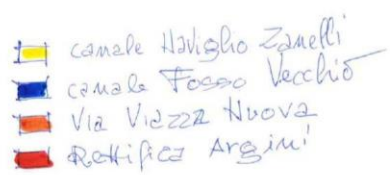 canale Naviglio Zanelli
canale Fosso Vecchio
Via Viazza Nuova
Rettifica Argini